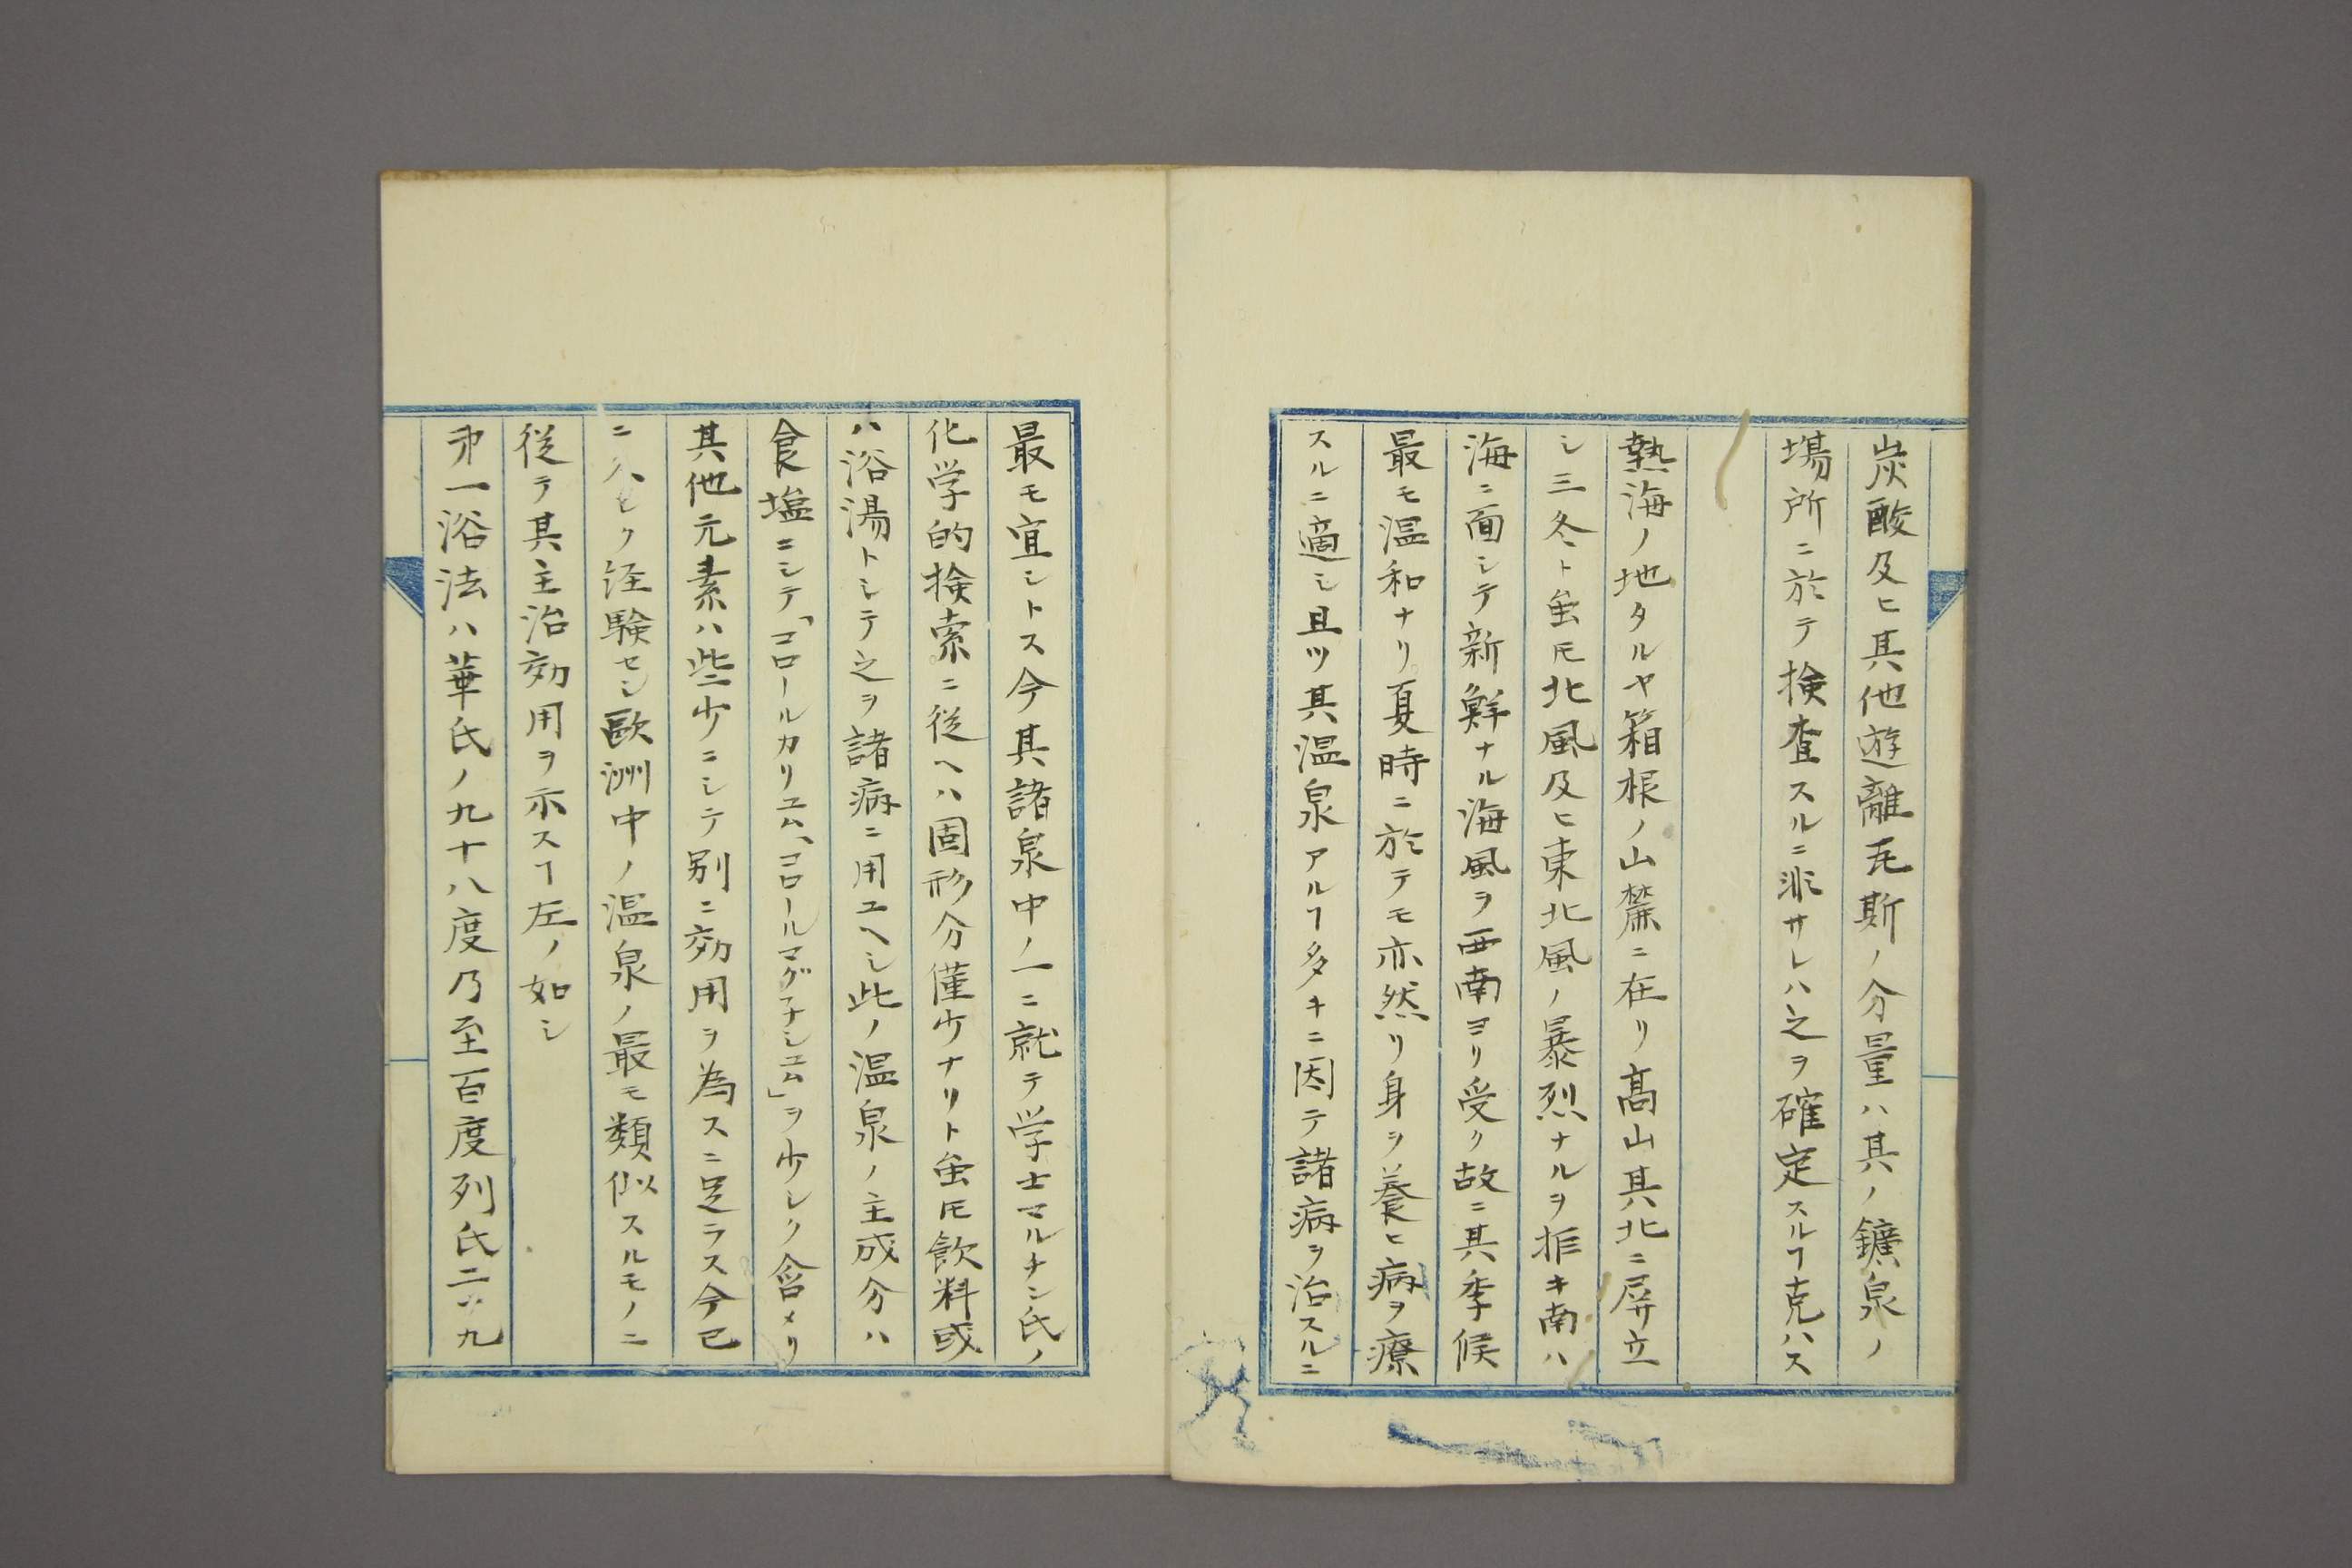 炭酸及ヒ其他遊離瓦斯ノ分量ハ其ノ鑛泉ノ
場所ニ於テ検査スルニ非サレハ之ヲ確定スルヿ克ハス
熱海ノ地タルヤ箱根ノ山麓ニ在リ高山其北ニ屏立
シ三冬ト虽𪜈北風及ヒ東北風ノ暴烈ナルヲ拒キ南ハ
海ニ面シテ新鮮ナル海風ヲ西南ヨリ受ク故ニ其季候
最モ温和ナリ夏時ニ於テモ亦然リ身ヲ養ヒ病ヲ療
スルニ適シ且ツ其温泉アルヿ多キニ因テ諸病ヲ治スルニ
最モ宜シトス今其諸泉中ノ一ニ就テ学士マルチン氏ノ
化学的検索ニ従ヘハ固形分僅少ナリト虽𪜈飲料或
ハ浴湯トシテ之ヲ諸病ニ用ユヘシ此ノ温泉ノ主成分ハ
食塩ニシテ「コロールカリユム、コロールマグ子シユム」ヲ少シク含メリ
其他元素ハ些少ニシテ別ニ効用ヲ為スニ足ラス今已
ニ久シク経験セシ歐洲中ノ温泉ノ最モ類似スルモノニ
従テ其主治効用ヲ示スヿ左ノ如シ
苐一浴法ハ華氏ノ九十八度乃至百度列氏二十九